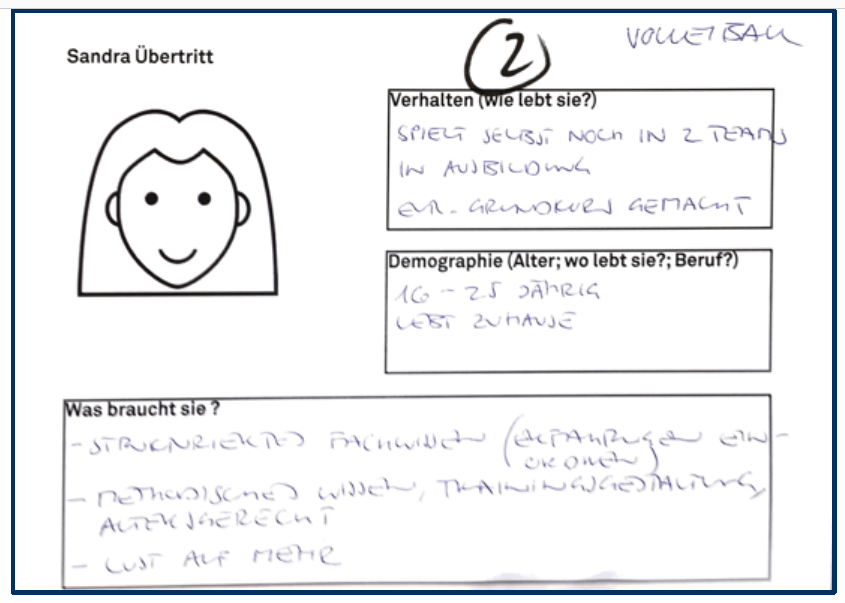 VOLLEYBALL
2
Sandra Übertritt
Verhalten (wie lebt sie?)
SPIELT SELBST NOCH IN 2 TEAMS
IN AUSBILDUNG
EVR. GRUNDKURS GEMACHT
Demographie (Alter; wo lebt sie?; Beruf?)
16 - 25 JÄHRIG
LEBT ZUHAUSE
Was braucht sie ?
- STRUKTURIERTES FACHWISSEN (ERFAHRUNGEN EIN-
ORDNEN)
- METHODISCHES WISSEN, TRAININGSGESTALTUNG,
ALTERSGERECHT
- LUST AUF MEHR